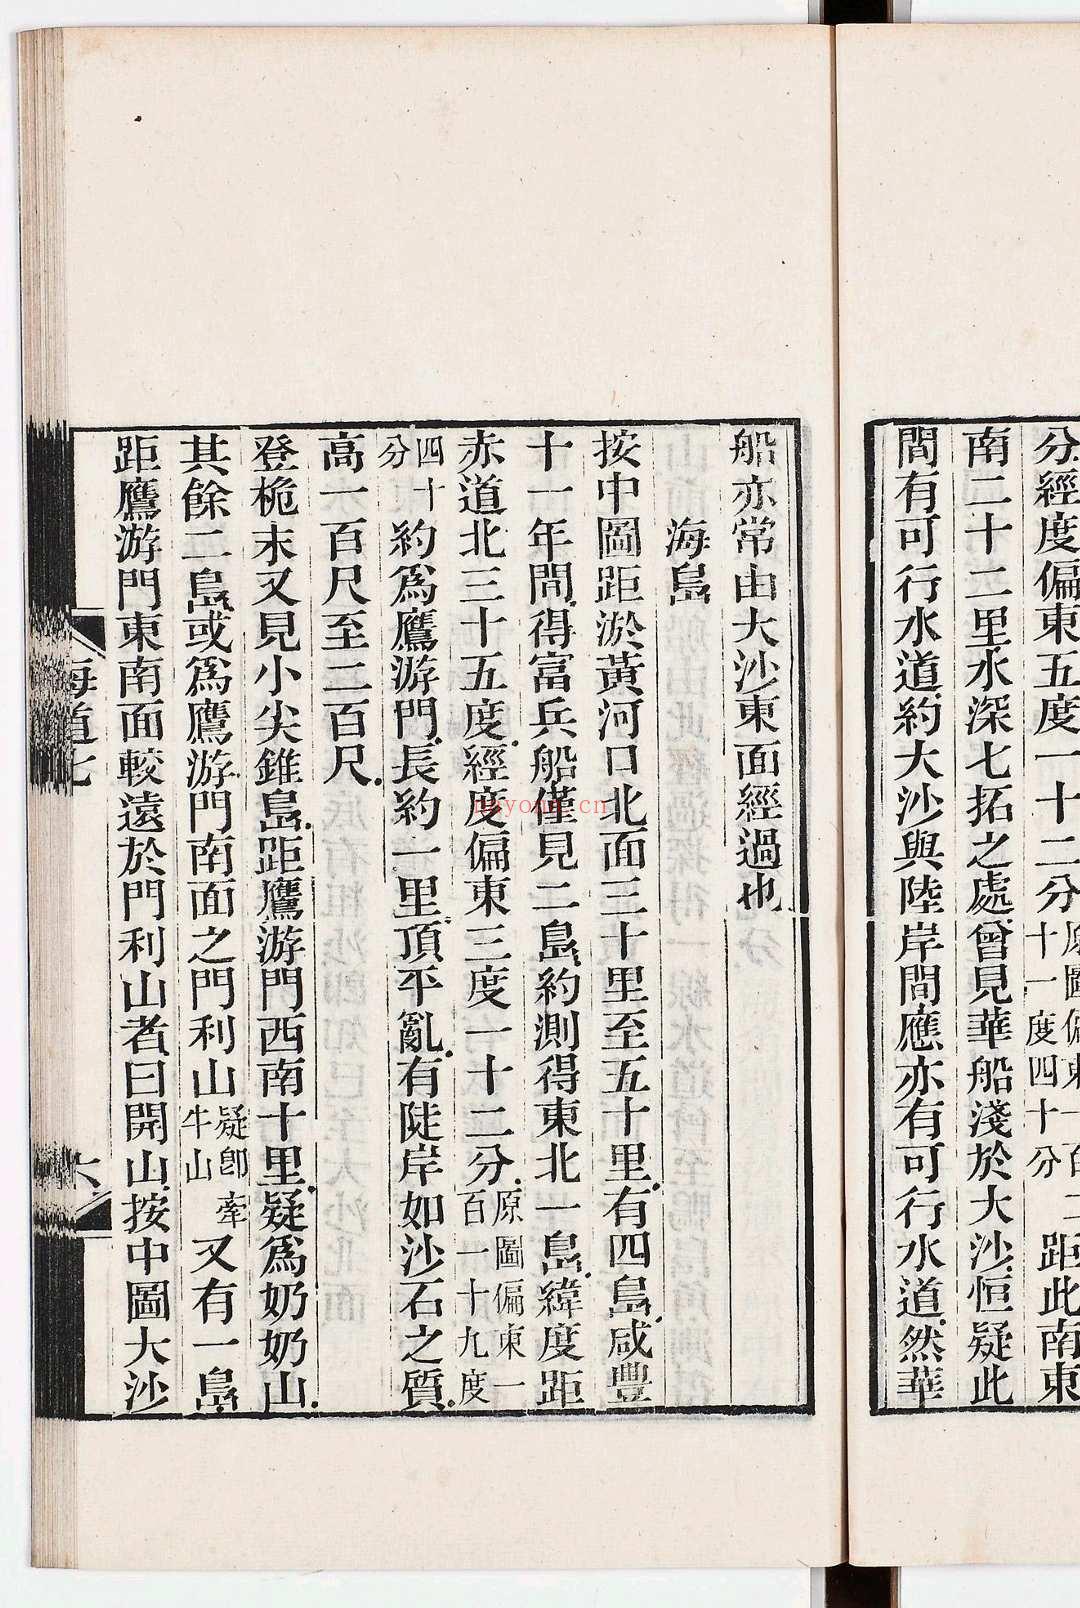 分經度偏東五度一十二分原圖偏東一百二十一度四十分距此南東
南二十二里水深七拓之處曾見華船淺於大沙恒疑此
間有可行水道約大沙與陸岸間應亦有可行水道然華
船亦常由大沙東面經過也
海島
按中圖距淤黃河口北面三十里至五十里有四島咸豐
十一年間得富兵船僅見二島約測得東北一島緯度距
赤道北三十五度經度偏東三度一十二分原圖偏東一百一十九度
四十分約爲鷹游門長約一里頂平亂有陡岸如沙石之質
高一百尺至二百尺
登桅末又見小尖錐島距鷹游門西南十里疑爲奶奶山
其餘二島或爲鷹游門南面之門利山疑卽牽牛山又有一島
距鷹游門東南面較遠於門利山者曰開山按中圖大沙
海道七
六
nuyona.cn